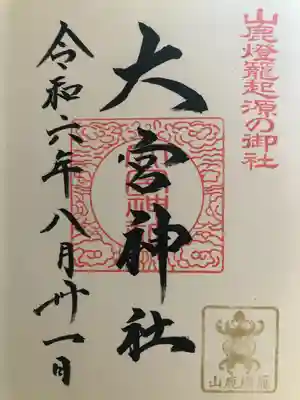 山鹿燈籠起源の御社
大宮神社
令和六年八月卅一日
山鹿燈籠